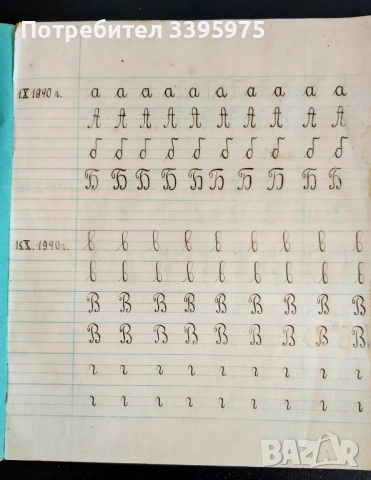 Потребител 3395975
1 X 1940 г. а а а а а а а а а а
А А А А А А А А А А
б б б б б б б б б б
Б Б Б Б Б Б Б Б Б
15 X. 1940 г. в в в в в в в в в
в в в в в в в в в
В В В В В В В В В
В В В В В В В В В
г г г г г г г г г
г г г г г г г г г
BAZAR